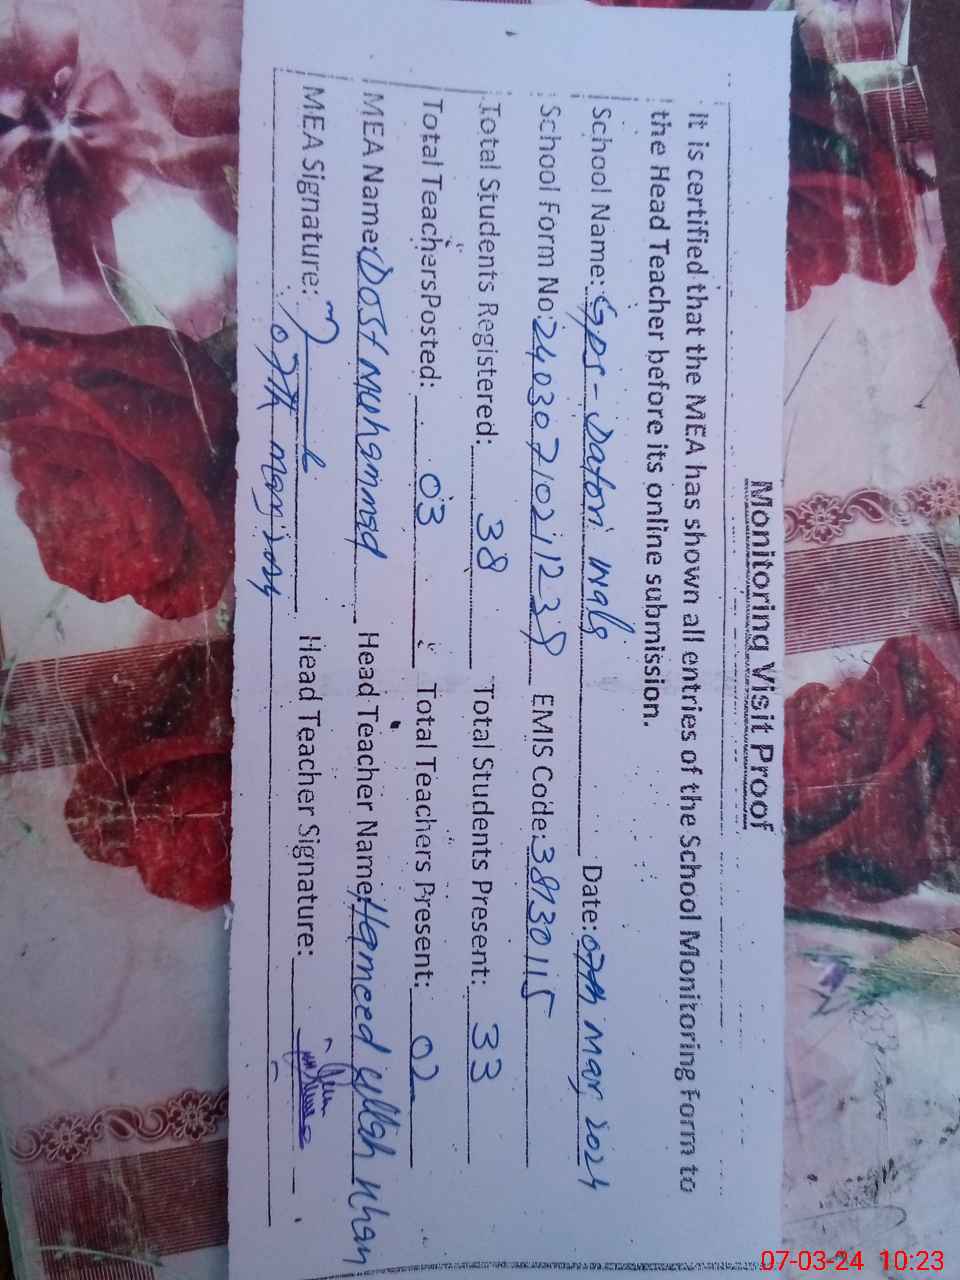 Monitoring Visit Proof
It is certified that the MEA has shown all entries of the School Monitoring Form to
the Head Teacher before its online submission.
School Name: GPS - Datori Wals Date: 07th Mar, 2024
School Form No: 24030710211239 EMIS Code: 38130115
Total Students Registered: 38 Total Students Present: 33
Total Teachers Posted: 03 Total Teachers Present: 02
MEA Name: Dost Muhammad Head Teacher Name: Hameed ullah Khan
MEA Signature: Head Teacher Signature:
07th Mar, 2024
07-03-24 10:23